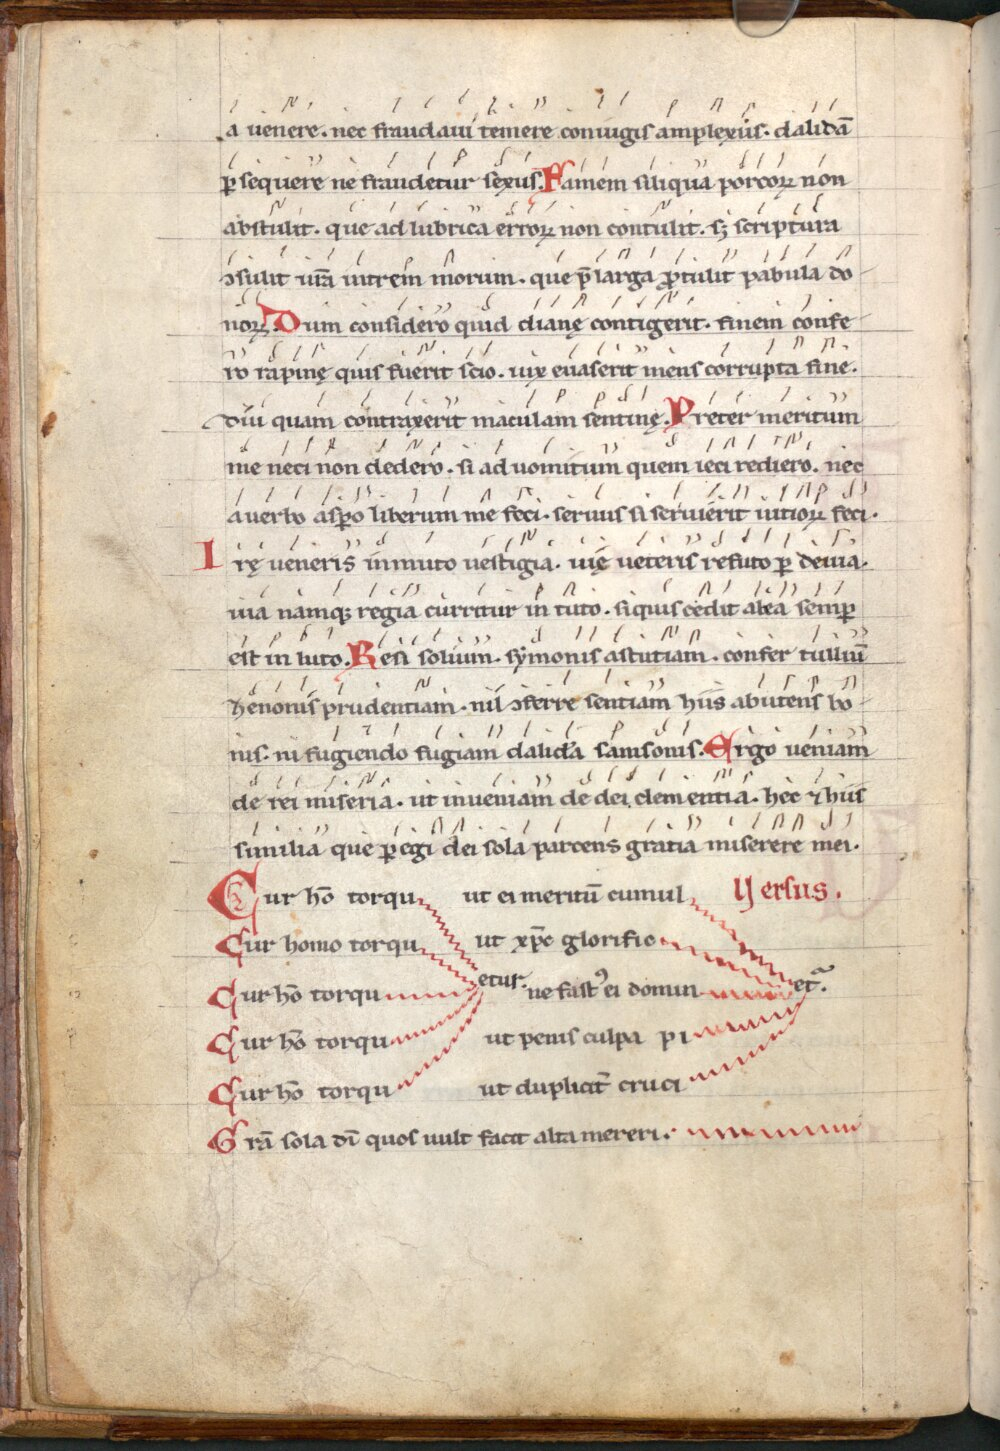 a uenere. nec fraudaui temere coniugis amplexus. dalidã
ꝑ sequere ne fraudetur sexus. Famem siliqua porcoꝝ non
abstulit. que ad lubrica erroꝝ non contulit. sꝫ scriptura
ↄsulit uĩa intrem morum. que p̃larga ꝓtulit pabula do
noꝝ. Dum considero quid dianę contigerit. finem confe
ro rapinę quis fuerit scio. uix euaserit mens corrupta fine.
diu quam contraxerit maculam sentinę. Preter meritum
me neci non dedero. si ad uomitum quem ieci rediero. nec
a uerbo aspo liberum me feci. seruus si seruierit uitioꝝ feci.
Irę ueneris inmuto uestigia. uię ueteris refuto ꝑ deuia.
uia namqꝫ regia curritur in tuto. siquis cedit alea semꝑ
est in luto. Resi solium. symonis astutiam. confer tulliũ
zenonis prudentiam. nil ↄferre sentiam hiis abutens bo
nis. ni fugiendo fugiam dalida samsonis. Ergo ueniam
de rei miseria. ut inueniam de dei clementia. hec ⁊ hiis
similia que ꝑegi dei sola parcens gratia miserere mei.
Cur hõ torqu ut ei meritũ cumul Versus.
Cur homo torqu ut xp̃c glorific
Cur hõ torqu etur. ne fastꝰ ei domin et.ᵃ
Cur hõ torqu ut penis culpa pi
Cur hõ torqu ut duplicit̃ cruci
Grã sola dĩ quos uult facit alta mereri.